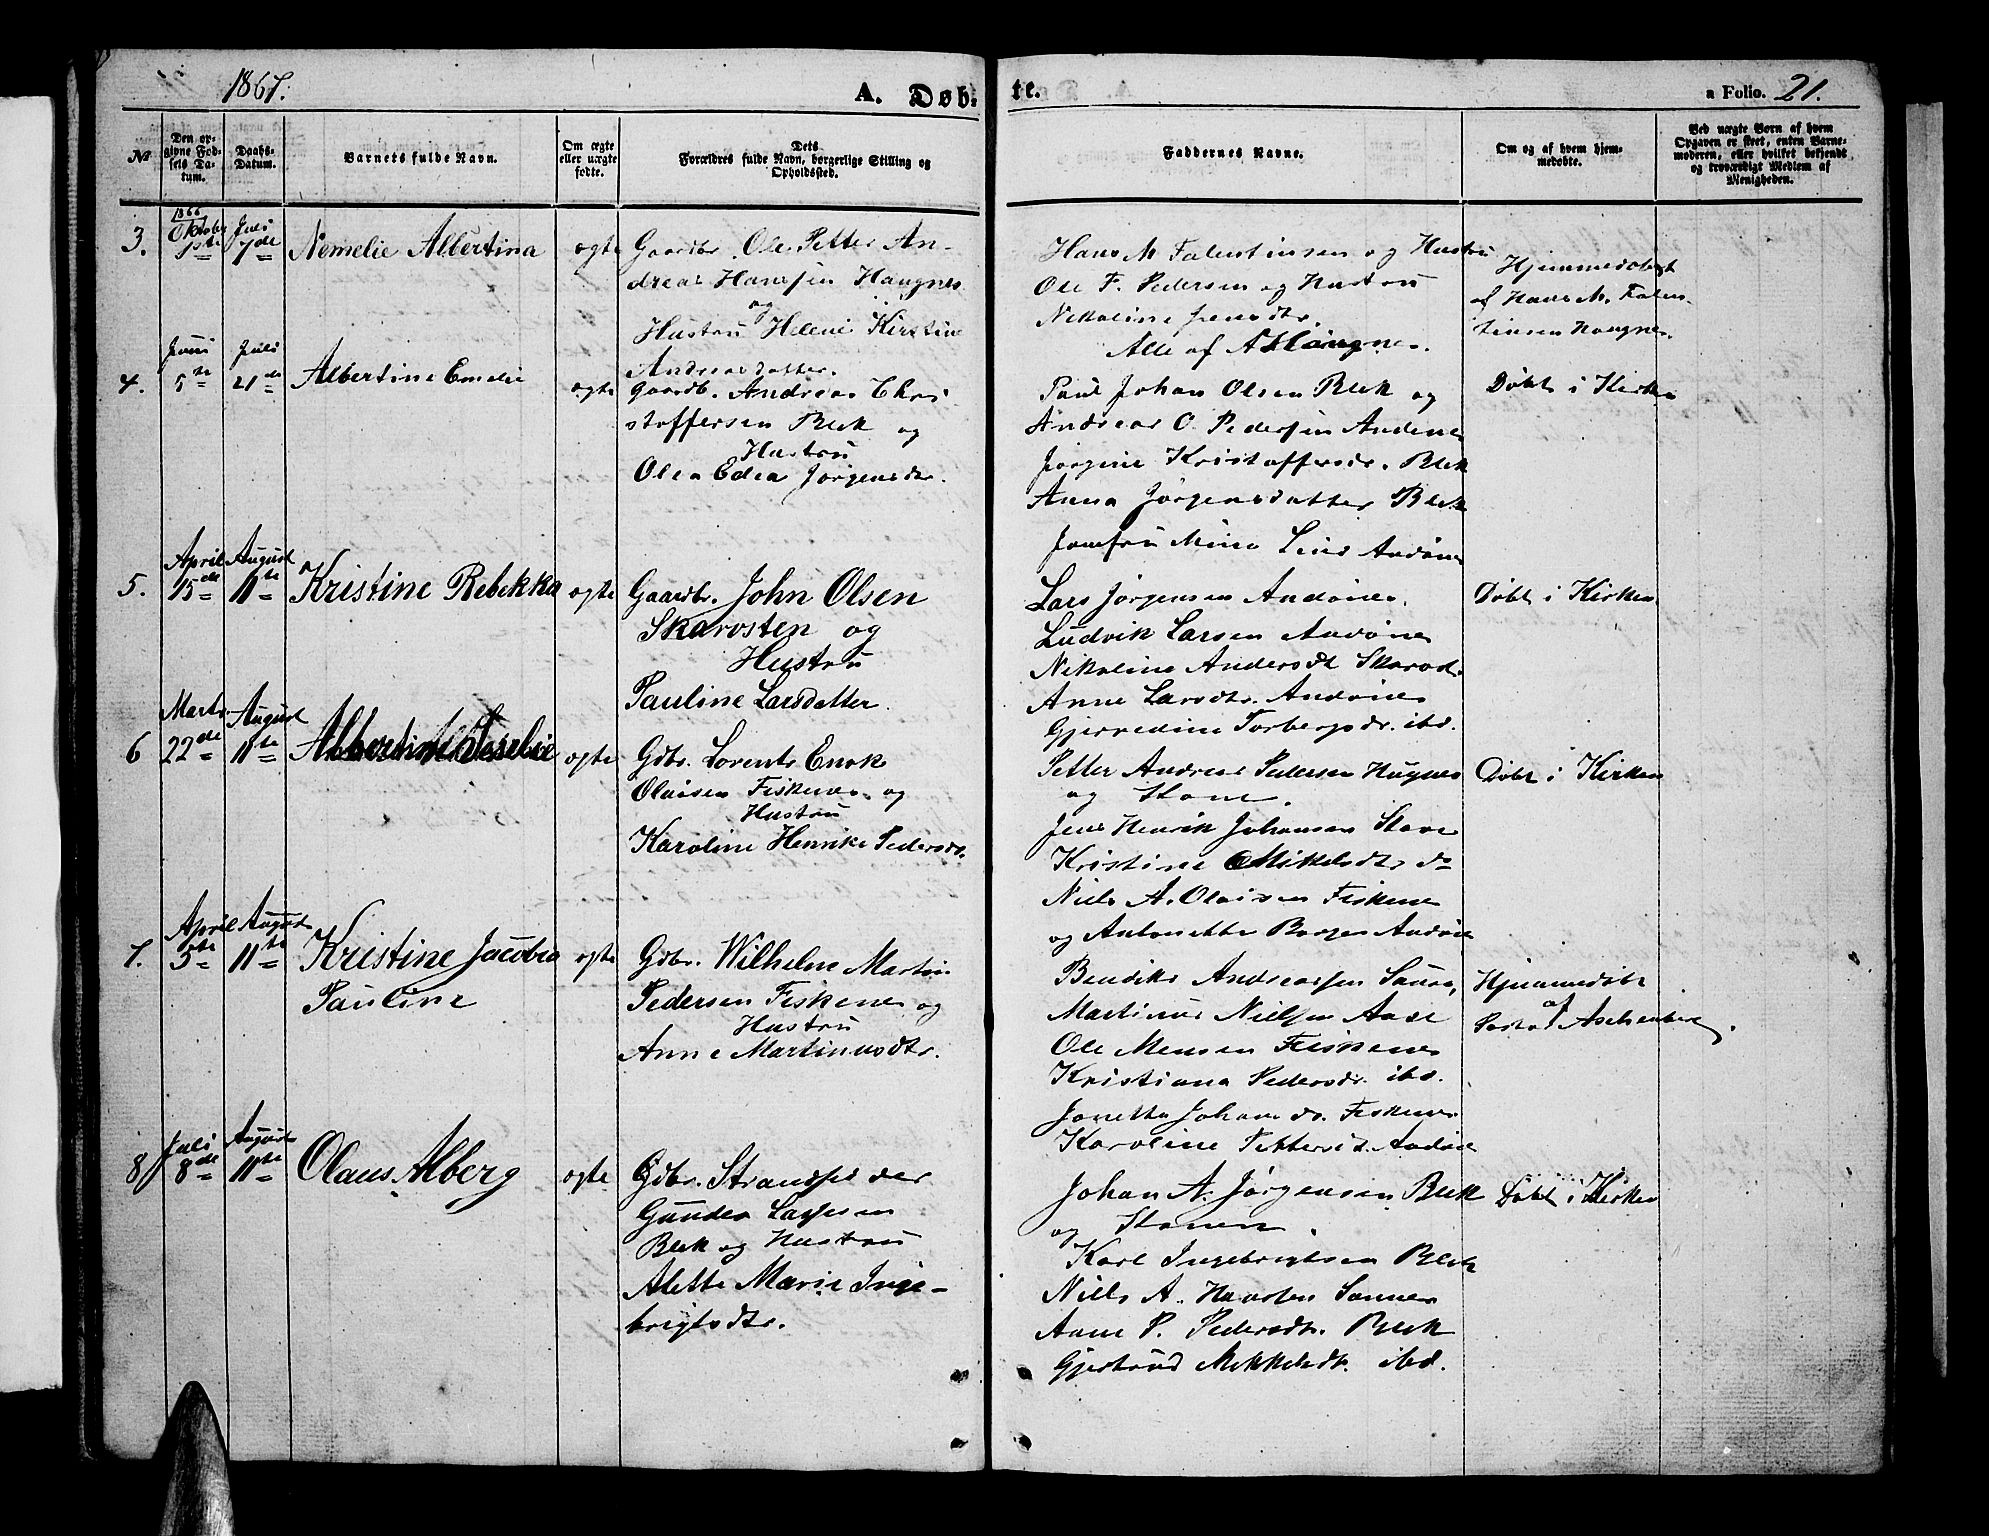 1867.
A. Døb-
te.
a Folio. 21.
№
Den opgivne Fødsels Datum.
Daabs-Datum.
Barnets fulde Navn.
Om ægte eller uægte fødte.
Dets Forældres fulde Navn, borgerlige Stilling og Opholdssted.
Faddernes Navne.
Om og af hvem hjemmedøbte.
Ved uægte Børn af hvem Opgaven er skeet, enten Barnemoderen, eller hvilket bekjendt og troværdigt Medlem af Menigheden.
3.
1866
Oktober
1ste
Juli
7de
Nemelie Albertina
ægte
Gaardbr. Ole Petter An-
dreas Hansen Haugnes
og
Hustru Helene Kirstine
Andreasdatter.
Hans M. Falentinsen og Hustru
Ole F. Pedersen og Hustru
Nikoline Jensdtr.
Alle af Haugnes.
Hjemmedøbt
af Hans M. Falen-
tinsen Haugnes.
4.
Juni
5te
Juli
21de
Albertine Emelie
ægte
Gaardb. Andreas Chri-
stoffersen Bleik og
Hustru
Olea Edea Jørgensdtr.
Paul Johan Olsen Bleik og
Andreas O. Pedersen Andenes
Jørgine Kristoffersdr. Bleik
Anna Jørgensdatter Bleik
Jomfru Mina Andønes
Døbt i Kirken
5.
April
15de
August
11te
Kristine Rebekka
ægte
Gaardbr. John Olsen
Skarvsten og
Hustru
Pauline Larsdatter.
Lars Jørgensen Andønes.
Ludvik Larsen Andønes
Nikoline Andersdt Skarvst.
Anne Larsdtr. Andønes
Torbergsdr. ibd.
Døbt i Kirken
6
Marts
22de
August
11te
Albertine
ægte
Gdbr. Lorents Enok
Olaisen Fiskenes og
Hustru
Karoline Henrike Pedersdt.
Petter Andreas Pedersen
og Kone.
Jens Henrik Johansen Stave
Kristine Mikelsdtr. do
Niels A. Olaisen Fiskenes
og Antonette Borgen Andøn
Døbt i Kirken
7.
April
5te
August
11te
Kristine Jacobia
Pauline
ægte
Gdbr. Wilhelm Martin
Pedersen Fiskenes og
Hustru
Anne Martinusdtr.
Bendiks Andreassen
Martinus Nielsen Aase
Ole Monsen Fiskenes
Kristiana Pedersdr. ibd.
Jonetta Johansdr. Fiskenes
Karoline Pettersdt. Andøn
Hjemmedøbt
af
Pastor Aschenberg.
8
Juli
8de
August
11te
Olaus Alberg
ægte
Gdbr. Strandsidder
Gunder Larsen
Bleik og Hustru
Alette Marie Inge-
brigtsdtr.
Johan A. Jørgensen Bleik
og Konen.
Karl Ingebrigtsen Bleik
Niels A. Hansen
Anne P. Pedersdt. Bleik
Gjertrud Mikkelsdt. ibd.
Døbt i Kirken